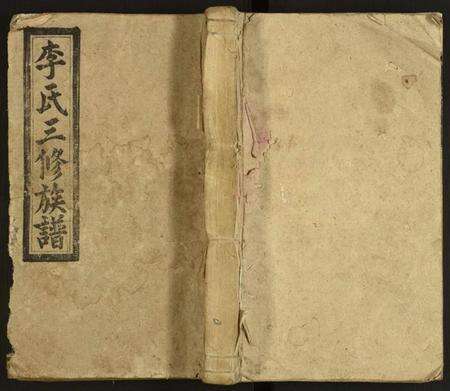 李氏三修族譜